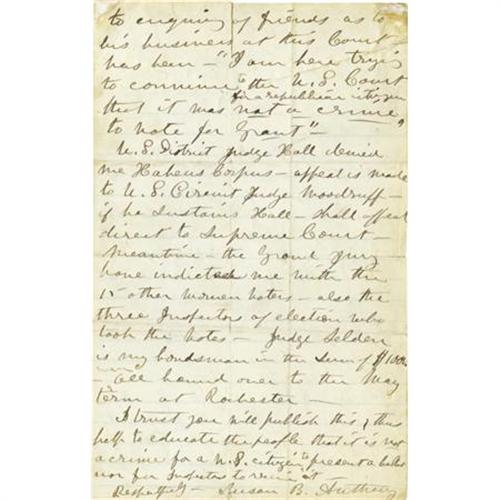 to enquiry of friends as to
his business at this Court
has been - "I am here trying
to convince the U.S. Court
for a republican citizen
that it was not a crime,
to vote for Grant" -
U.S. District Judge Hall denied
me Habeus Corpus - appeal is made
to U.S. Circuit Judge Woodruff -
if he sustains Hall - shall appeal
direct to Supreme Court -
meantime - the Grand Jury
have indicted me with the
15 other women voters - also the
three Inspectors of election who
took the votes - Judge Selden
is my bondsman in the sum of $1000.
- all bound over to the May
term at Rochester -
I trust you will publish this & thus
help to educate the people that it is not
a crime for a U.S. citizen to present a ballot
nor for Inspectors to receive it
Respectfully - Susan B. Anthony